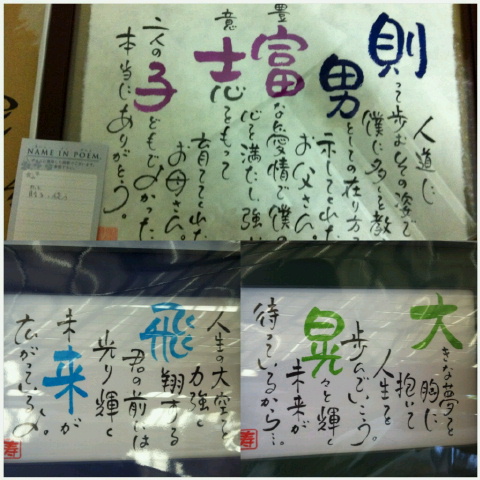 人道に
則って歩むその姿で
僕に多くを教
男としての在り方
示してくれた
お父さん。
豊富な愛情で僕の
心を満たし強い
意志をもって
育ててくれた
お母さん。
二人の子どもでよかった…
本当にありがとう。
NAME IN POEM
人生の大空を
力強く
飛翔する
君の前には
光り輝く
未来が
広がっている。
寿
大きな夢を
胸に
抱いて
人生を
歩んでいこう。
晃々と輝く
未来が
待っているから…。
寿